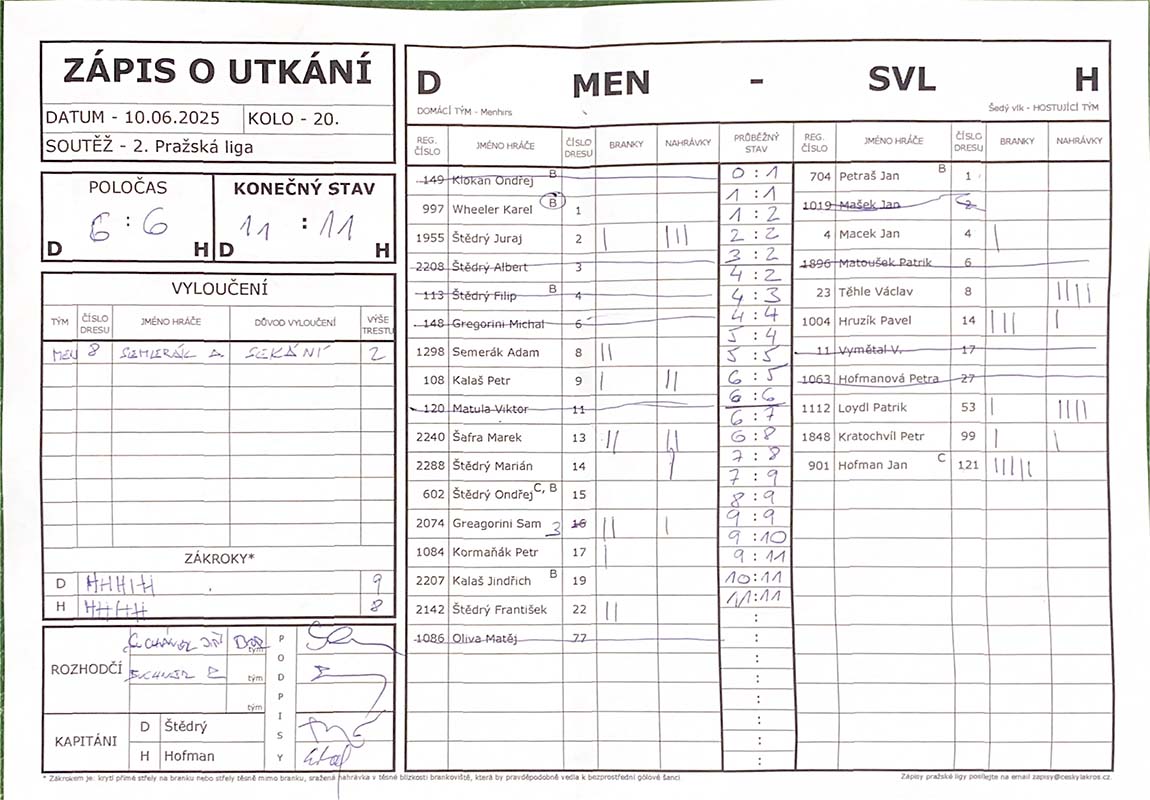 ZÁPIS O UTKÁNÍ
DATUM - 10.06.2025 KOLO - 20.
SOUTĚŽ - 2. Pražská liga
POLOČAS KONEČNÝ STAV
6 : 6 11 : 11
D H D H
VYLOUČENÍ
TÝM ČÍSLO DRESU JMÉNO HRÁČE DŮVOD VYLOUČENÍ VÝŠE TRESTU
MEN 8 SEMERÁK A SEKÁNÍ 2
ZÁKROKY*
D 9
H 8
ROZHODČÍ
tým
tým
tým
PODPISY
KAPITÁNI
D Štědrý
H Hofman
D MEN - SVL H
DOMÁCÍ TÝM - Menhirs Šedý vlk - HOSTUJÍCÍ TÝM
REG. ČÍSLO JMÉNO HRÁČE ČÍSLO DRESU BRANKY NAHRÁVKY PRŮBĚŽNÝ STAV REG. ČÍSLO JMÉNO HRÁČE ČÍSLO DRESU BRANKY NAHRÁVKY
149 Klokan Ondřej B
997 Wheeler Karel B 1
1955 Štědrý Juraj 2 | |||
2208 Štědrý Albert 3
113 Štědrý Filip B 4
148 Gregorini Michal 6
1298 Semerák Adam 8 ||
108 Kalaš Petr 9 | ||
120 Matula Viktor 11
2240 Šafra Marek 13 || ||
2288 Štědrý Marián 14
602 Štědrý Ondřej C, B 15
2074 Greagorini Sam 3 16 || |
1084 Kormaňák Petr 17 |
2207 Kalaš Jindřich B 19
2142 Štědrý František 22 ||
1086 Oliva Matěj 77
0 : 1
1 : 1
1 : 2
2 : 2
3 : 2
4 : 2
4 : 3
4 : 4
5 : 4
5 : 5
6 : 5
6 : 6
6 : 7
6 : 8
7 : 8
7 : 9
8 : 9
9 : 9
9 : 10
9 : 11
10 : 11
11 : 11
704 Petraš Jan B 1
1019 Mašek Jan 2
4 Macek Jan 4 |
1896 Matoušek Patrik 6
23 Těhle Václav 8 ||||
1004 Hruzík Pavel 14 ||| |
11 Vymětal V. 17
1063 Hofmanová Petra 27
1112 Loydl Patrik 53 | ||||
1848 Kratochvíl Petr 99 | |
901 Hofman Jan C 121 |||||
* Zákrokem je: krytí přímé střely na branku nebo střely těsně mimo branku, sražená nahrávka v těsné blízkosti brankoviště, která by pravděpodobně vedla k bezprostřední gólové šanci
Zápisy pražské ligy posílejte na email zapisy@ceskylakros.cz.